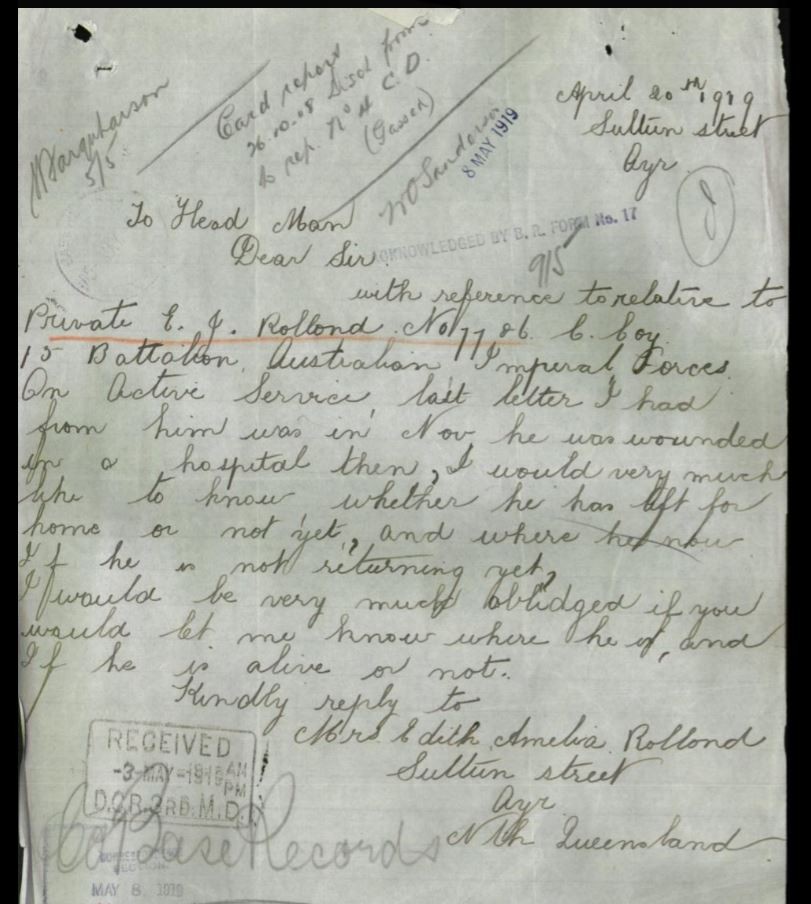 Card report
26.10.18 Disch from
to rep. No 4 C.D.
(Gassed)
WO Sanderson
8 MAY 1919
5/5
April 20th 1919
Sultun street
Ayr
To Head Man
Dear Sir
ACKNOWLEDGED BY B. R. FORM No. 17
9/5
with reference to relative to
Private E. J. Rollond. No 7786. C. Coy
15 Battalion, Australian Imperal Forces.
On Active Service last letter I had
from him was in Nov he was wounded
in a hospital then, I would very much
like to know whether he has left for
home or not yet, and where he now
If he is not returning yet,
I would be very much oblidged if you
would let me know where he is, and
If he is alive or not.
Kindly reply to
Mrs Edith Amelia Rollond
Sultun street
Ayr
Nth Queensland
RECEIVED
-3-MAY-1919 AM
PM
D.O.R. 3RD. M.D.
Base Records
MAY 8 1919